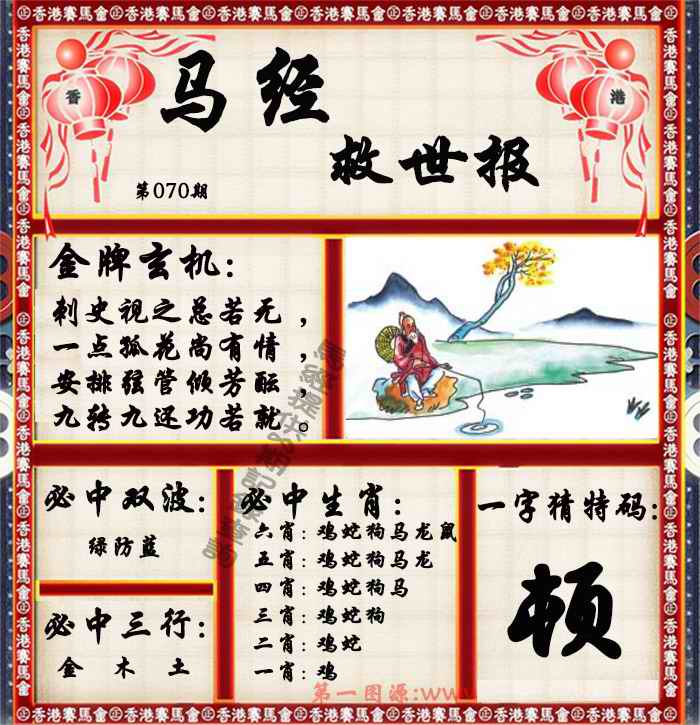 香港賽馬會
香
港
马经
救世报
第070期
金牌玄机：
刺史视之总若无，
一点孤花尚有情，
安排弦管倾芳酝，
九转九还功若就。
必中双波：
绿防蓝
必中三行：
金 木 土
必中生肖：
六肖：鸡蛇狗马龙鼠
五肖：鸡蛇狗马龙
四肖：鸡蛇狗马
三肖：鸡蛇狗
二肖：鸡蛇
一肖：鸡
一字猜特码：
顿
第一图源:www